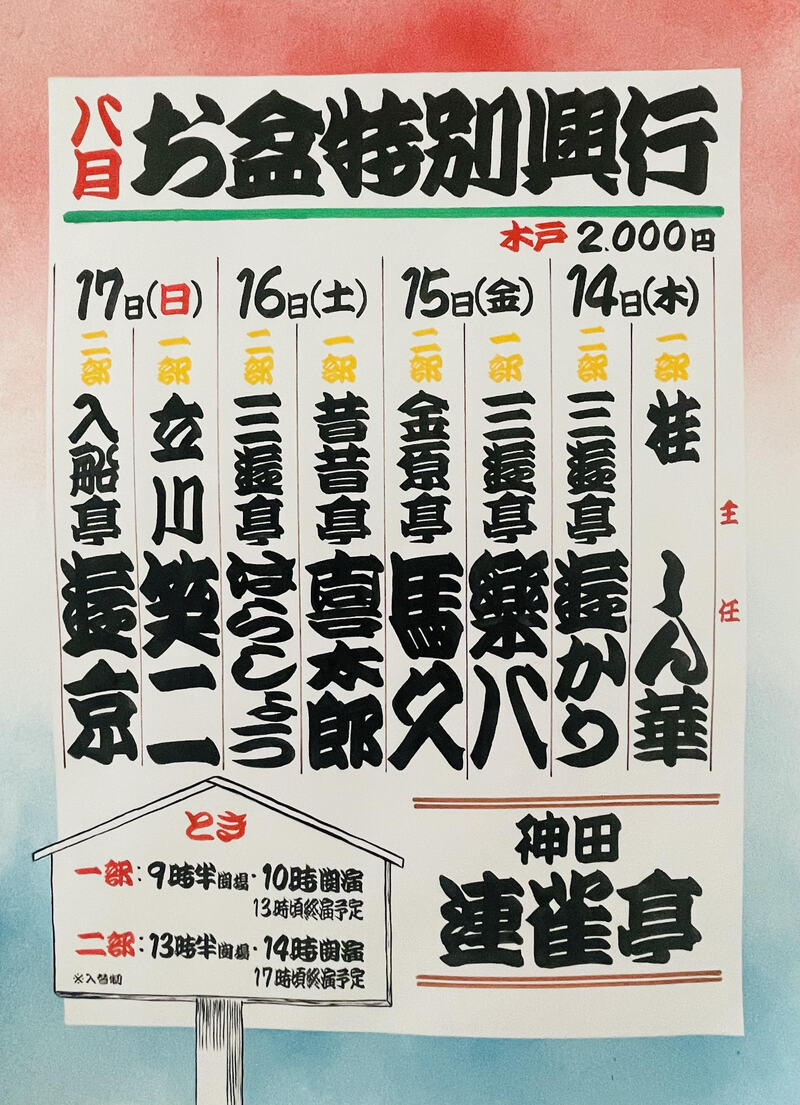 八月 お盆特別興行
木戸 2.000円
14日(木)
主任
一部 桂 しん華
二部 三遊亭 遊かり
15日(金)
一部 三遊亭 樂八
二部 金原亭 馬久
16日(土)
一部 昔昔亭 喜太郎
二部 三遊亭 はらしょう
17日(日)
一部 立川 笑二
二部 入船亭 遊京
神田
連雀亭
とき
一部:9時半開場・10時開演
13時頃終演予定
二部:13時半開場・14時開演
17時頃終演予定
※入替制